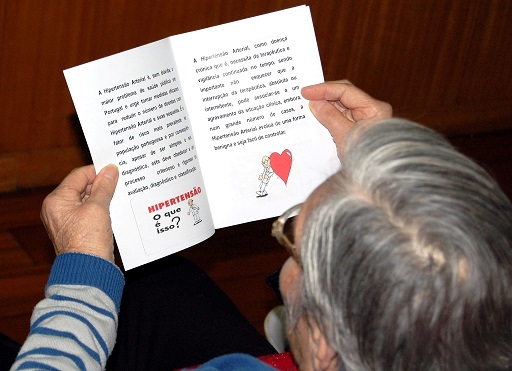 A Hipertensão Arterial é, sem dúvida, o
maior problema de saúde pública em
Portugal e urge tomar medidas eficazes
para reduzir o número de doentes com
Hipertensão Arterial e suas sequelas. É o
fator de risco mais prevalente na
população portuguesa e por
cia, apesar de ser simples o seu
diagnóstico, este deve obedecer a um
processo criterioso e rigoroso de
avaliação, diagnóstico e classificação.
HIPERTENSÃO
O que
é
isso?
A Hipertensão Arterial, como doença
crónica que é, necessita de terapêutica e
vigilância continuada no tempo, sendo
importante não esquecer que a
interrupção da terapêutica, absoluta ou
intermitente, pode associar-se a um
agravamento da situação clínica, embora
num grande número de casos, a
Hipertensão Arterial evolua de uma forma
benigna e seja fácil de controlar.